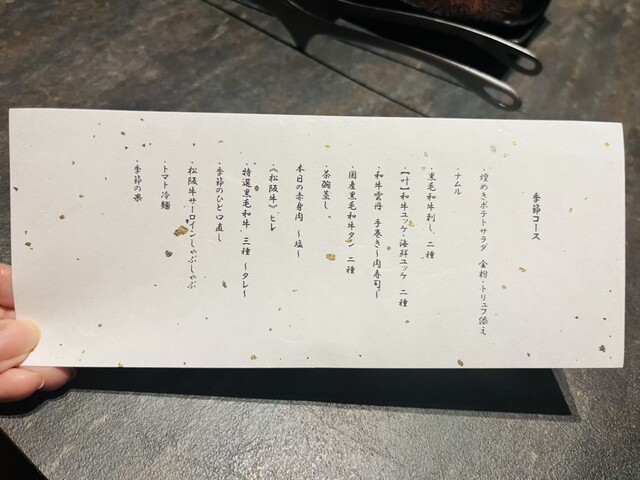 季節コース
・煌めきポテトサラダ 金粉・トリュフ添え
・ナムル
・黒毛和牛刺し 二種
・【叶】和牛ユッケ・海鮮ユッケ 二種
・和牛雲丹 手巻き～肉寿司～
・国産黒毛和牛タン 二種
・茶碗蒸し
本日の赤身肉 ～塩～
・《松阪牛》ヒレ
・特選黒毛和牛 三種 ～タレ～
・季節のひと口直し
・松阪牛サーロインしゃぶしゃぶ
・トマト冷麺
・季節の菓